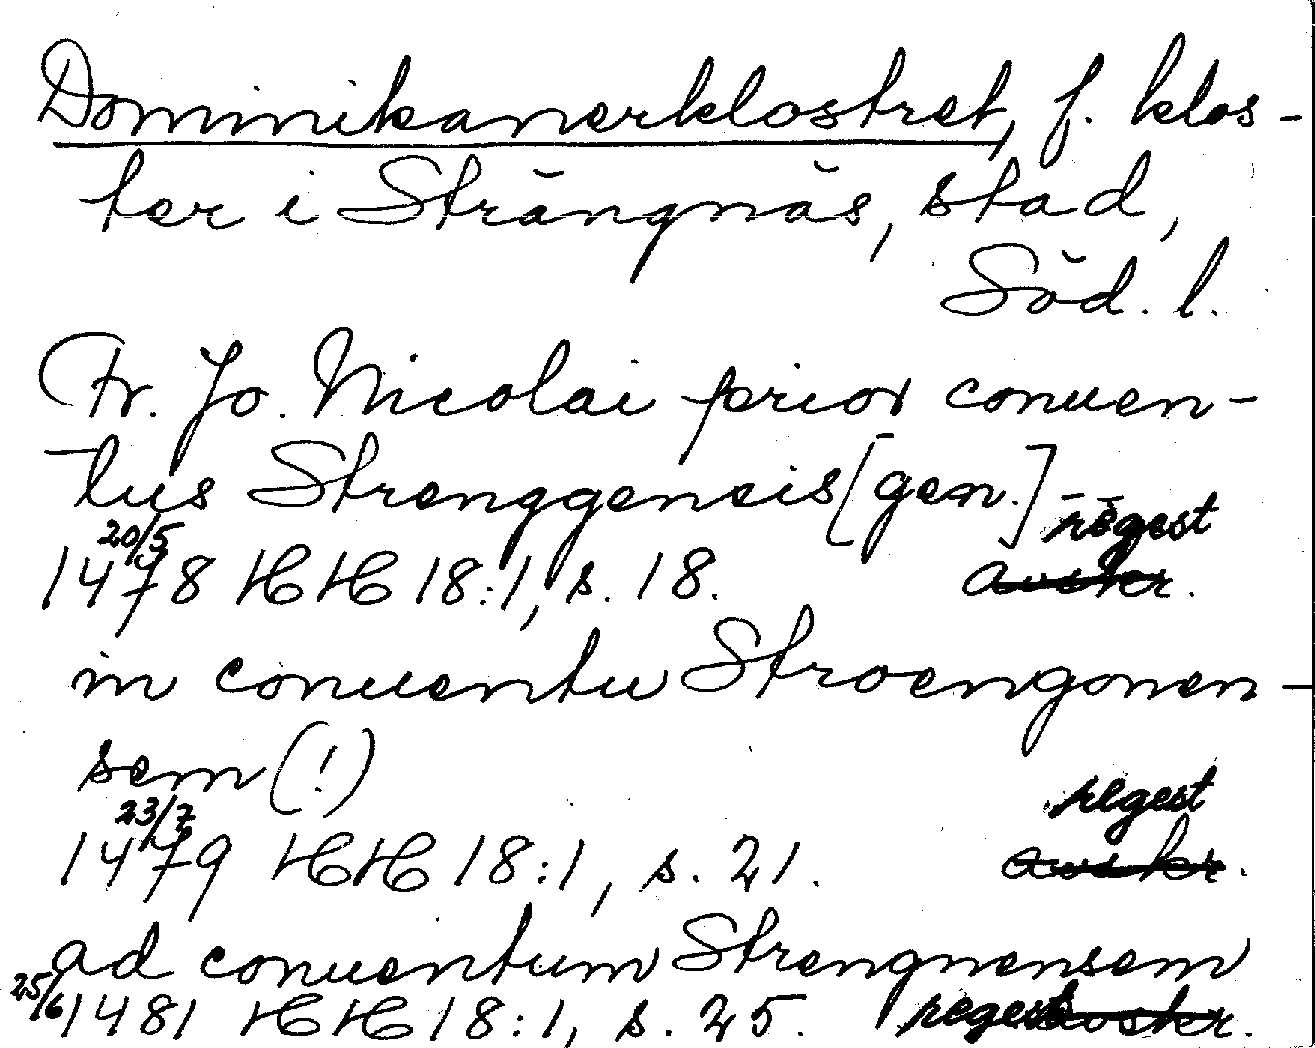 Dominikanerklostret, f. klos-
ter i Strängnäs, stad,
Söd. l.
Fr. Jo. Nicolai prior conuen-
tus Strenggeneis [gen.]
20/5 regest
1478 HH 18:1, s. 18. avskr.
in conuentu Stroengonen-
sem (!)
23/7 regest
1479 HH 18:1, s. 21. avskr.
ad conuentum Strengnensem
25/6 1481 HH 18:1, s. 25. regest avskr.